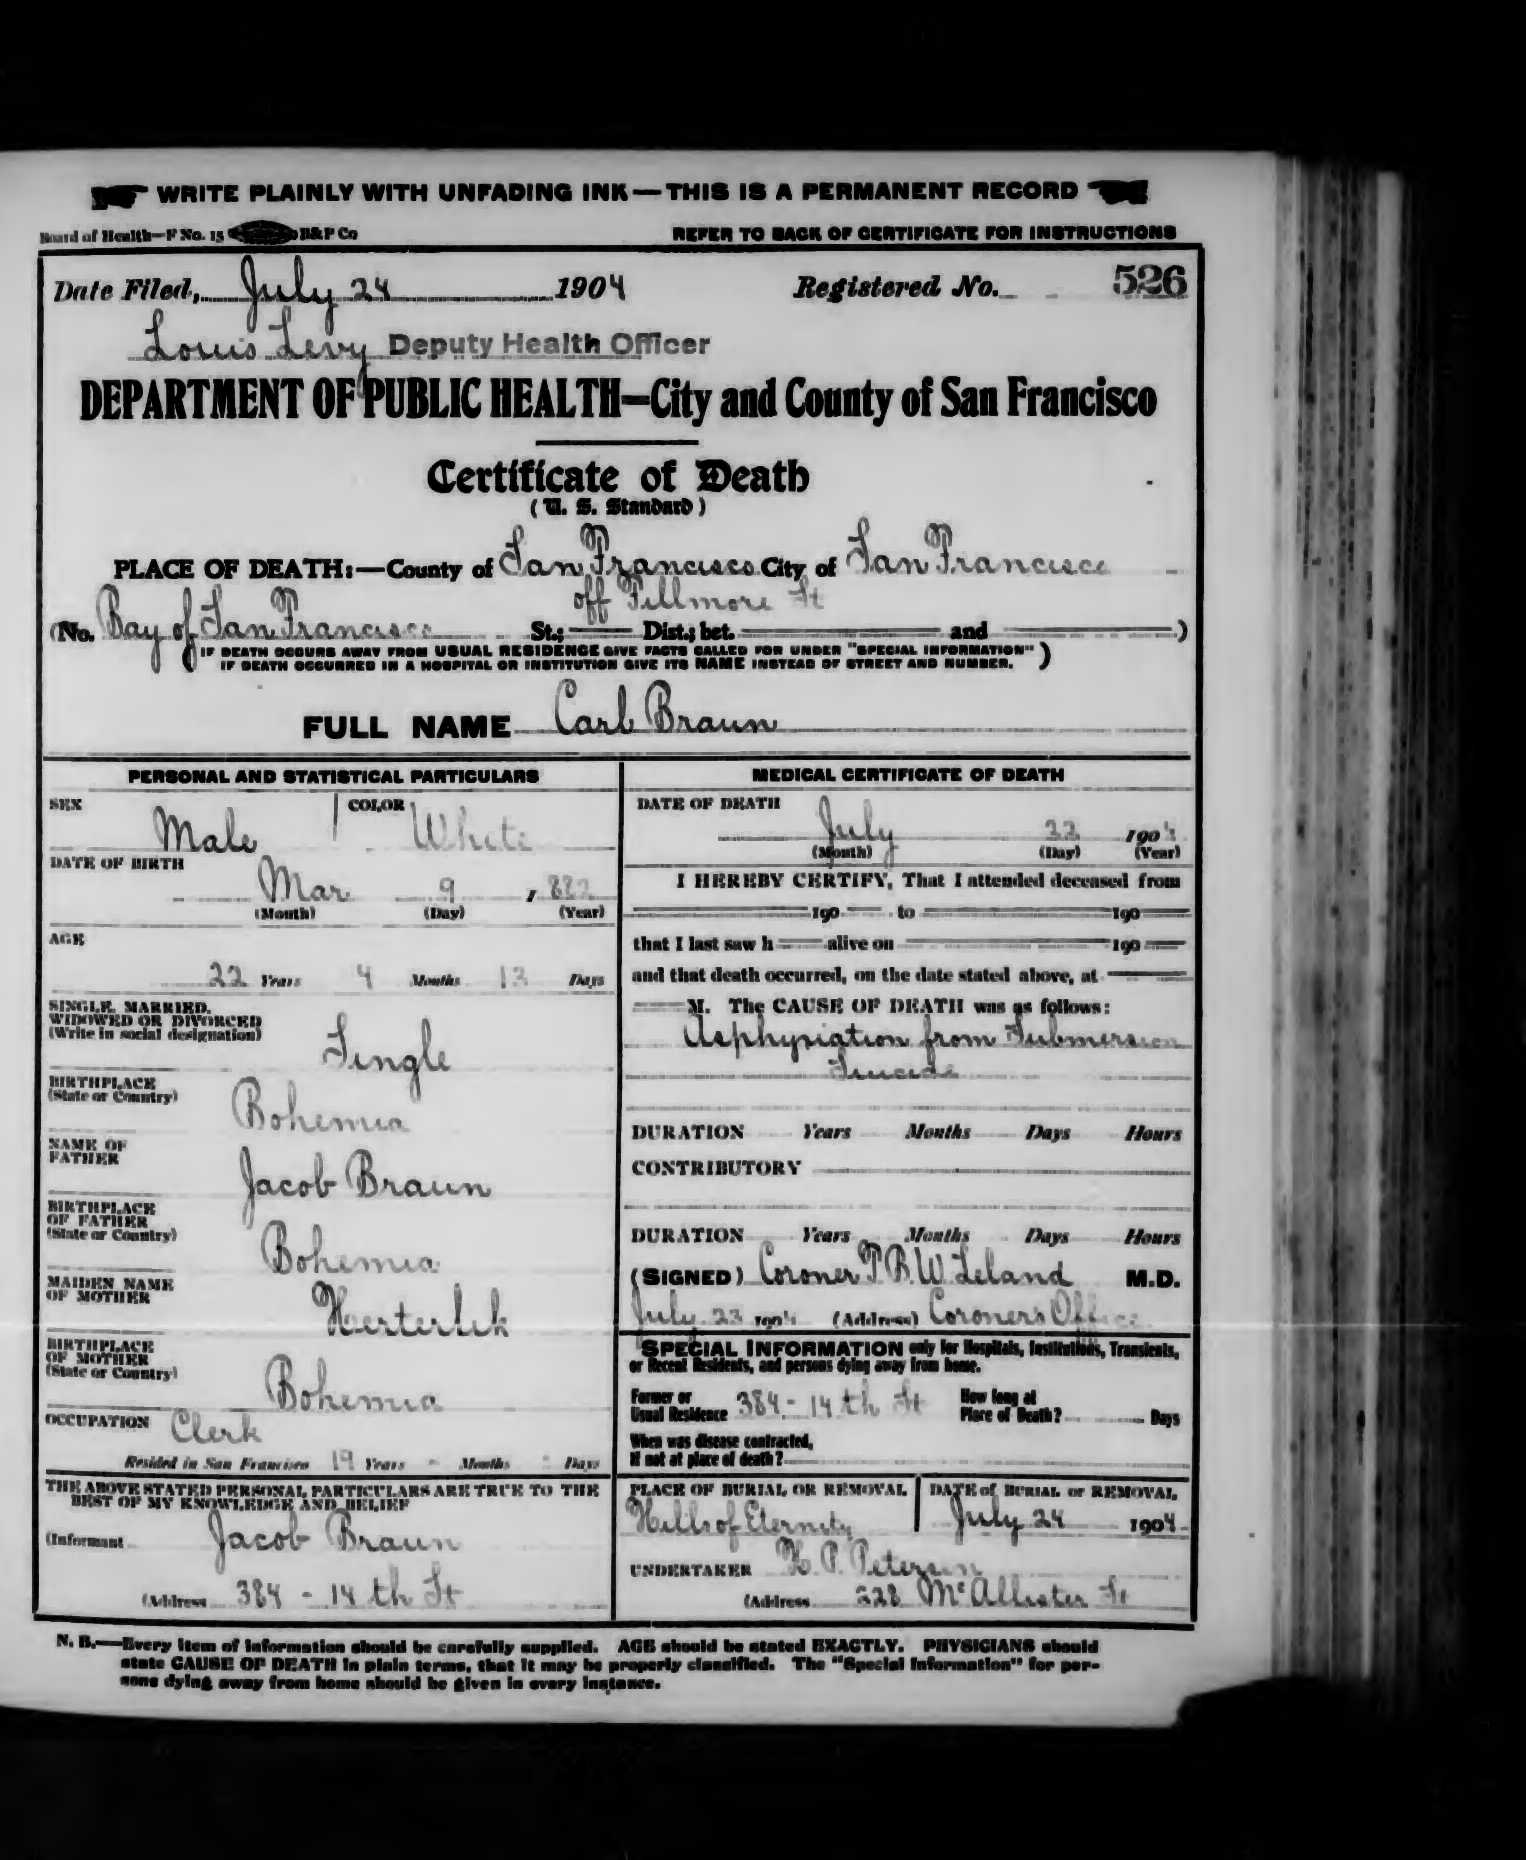 WRITE PLAINLY WITH UNFADING INK—THIS IS A PERMANENT RECORD
Board of Health—F No. 15 B&P Co
REFER TO BACK OF CERTIFICATE FOR INSTRUCTIONS
Date Filed, July 24 1904 Registered No. 526
Louis Levy Deputy Health Officer
DEPARTMENT OF PUBLIC HEALTH—City and County of San Francisco
Certificate of Death
(U. S. Standard)
PLACE OF DEATH:—County of San Francisco City of San Francisco
off Fillmore St
(No. Bay of San Francisco St.; Dist.; bet. and )
(IF DEATH OCCURS AWAY FROM USUAL RESIDENCE GIVE FACTS CALLED FOR UNDER "SPECIAL INFORMATION"
IF DEATH OCCURRED IN A HOSPITAL OR INSTITUTION GIVE ITS NAME INSTEAD OF STREET AND NUMBER.)
FULL NAME Carl Braun
PERSONAL AND STATISTICAL PARTICULARS
SEX Male COLOR White
DATE OF BIRTH
Mar 9, 1882
(Month) (Day) (Year)
AGE
22 Years 4 Months 13 Days
SINGLE, MARRIED,
WIDOWED OR DIVORCED
(Write in social designation)
Single
BIRTHPLACE
(State or Country)
Bohemia
NAME OF
FATHER
Jacob Braun
BIRTHPLACE
OF FATHER
(State or Country)
Bohemia
MAIDEN NAME
OF MOTHER
Herterlik
BIRTHPLACE
OF MOTHER
(State or Country)
Bohemia
OCCUPATION Clerk
Resided in San Francisco 19 Years - Months - Days
THE ABOVE STATED PERSONAL PARTICULARS ARE TRUE TO THE
BEST OF MY KNOWLEDGE AND BELIEF
(Informant Jacob Braun
(Address 384 - 14th St
MEDICAL CERTIFICATE OF DEATH
DATE OF DEATH
July 22 1904
(Month) (Day) (Year)
I HEREBY CERTIFY, That I attended deceased from
190 to 190
that I last saw h alive on 190
and that death occurred, on the date stated above, at
M. The CAUSE OF DEATH was as follows:
Asphyxiation from Submersion
Suicide
DURATION Years Months Days Hours
CONTRIBUTORY
DURATION Years Months Days Hours
(SIGNED) Coroner T. B. W. Leland M.D.
July 23 1904 (Address) Coroners Office
SPECIAL INFORMATION only for Hospitals, Institutions, Transients,
or Recent Residents, and persons dying away from home.
Former or
Usual Residence 384 - 14th St
How long at
Place of Death? Days
When was disease contracted,
If not at place of death?
PLACE OF BURIAL OR REMOVAL
Hills of Eternity
DATE of BURIAL or REMOVAL
July 24 1904
UNDERTAKER H. P. Petersen
(Address 228 McAllister St
N. B.—Every item of information should be carefully supplied. AGE should be stated EXACTLY. PHYSICIANS should
state CAUSE OF DEATH in plain terms, that it may be properly classified. The "Special Information" for per-
sons dying away from home should be given in every instance.